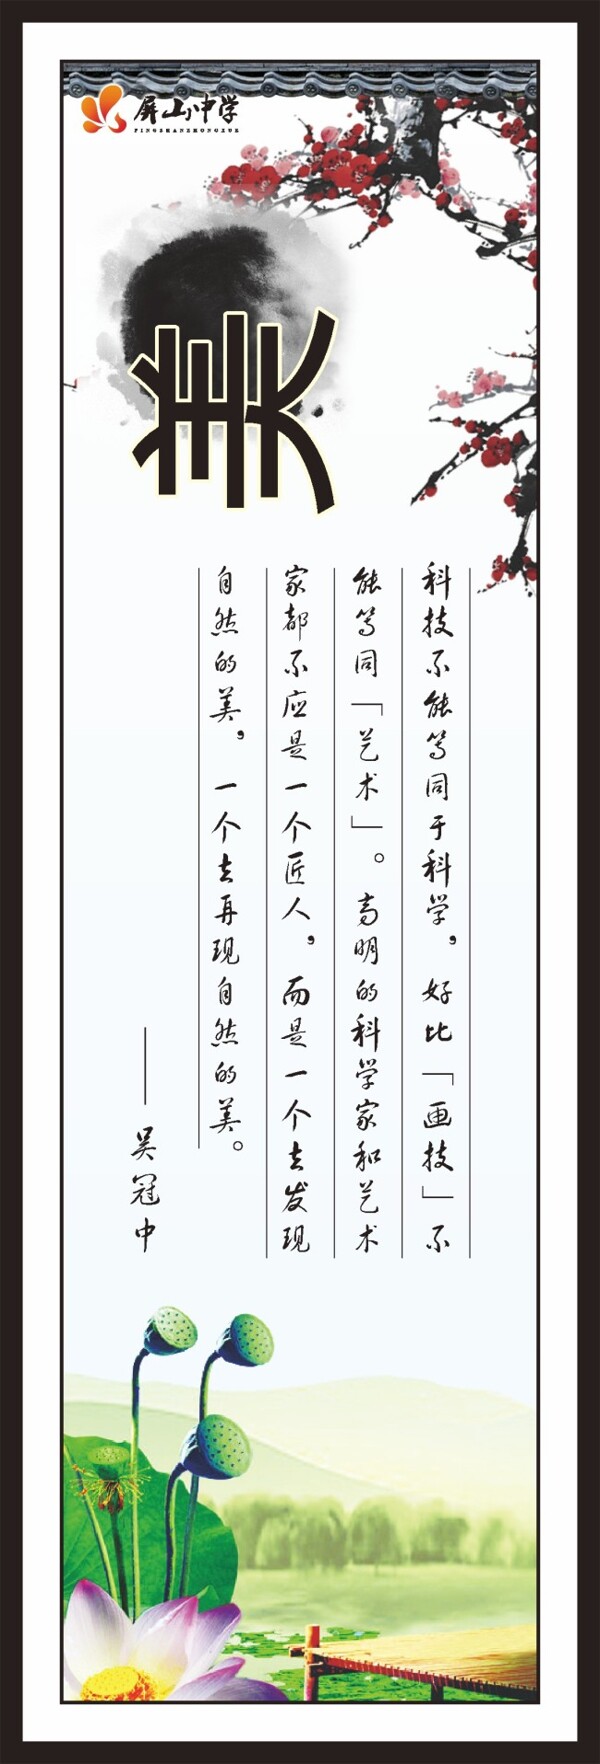 屏山中学
PINGSHANZHONGXUE
美
科技不能等同于科学，好比「画技」不
能等同「艺术」。高明的科学家和艺术
家都不应是一个匠人，而是一个去发现
自然的美，一个去再现自然的美。
——吴冠中